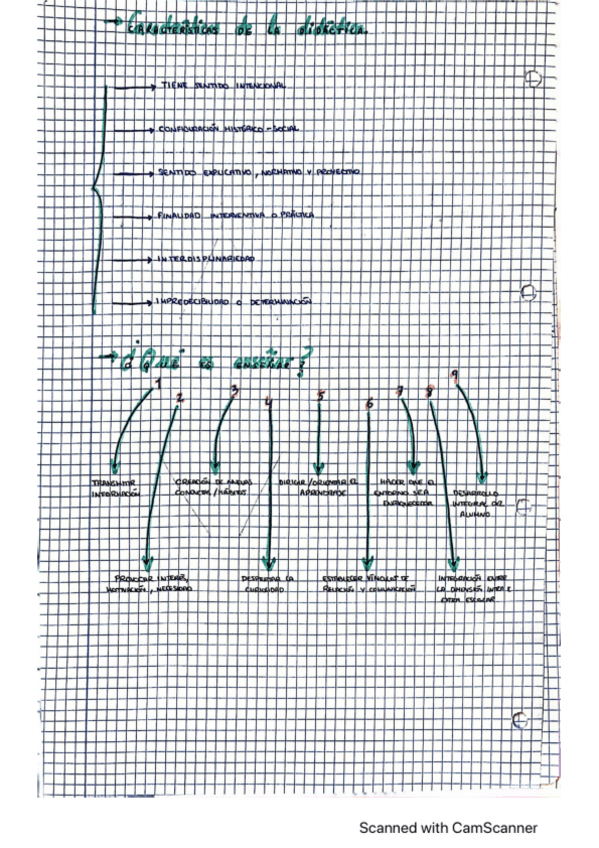 → Características de la didáctica.
→ TIENE SENTIDO INTENCIONAL
→ CONFIGURACIÓN HISTÓRICO - SOCIAL
→ SENTIDO EXPLICATIVO, NORMATIVO Y PROYECTIVO
→ FINALIDAD INTERVENTIVA O PRÁCTICA
→ INTERDISPLINARIEDAD
→ IMPREDECIBILIDAD O DETERMINACIÓN
→ ¿Qué es enseñar?
1 2 3 4 5 6 7 8 9
TRANSMITIR
INFORMACIÓN
CREACIÓN DE NUEVAS
CONDUCTAS / HÁBITOS
DIRIGIR / ORIENTAR EL
APRENDIZAJE
HACER QUE EL
ENTORNO SEA
ENRIQUECEDOR
DESARROLLO
INTEGRAL DEL
ALUMNO
PROVOCAR INTERÉS,
MOTIVACIÓN, NECESIDAD
DESPERTAR LA
CURIOSIDAD
ESTABLECER VÍNCULOS DE
RELACIÓN Y COMUNICACIÓN
INTEGRACIÓN ENTRE
LA DIMENSIÓN INTER E
EXTRA ESCOLAR
Scanned with CamScanner